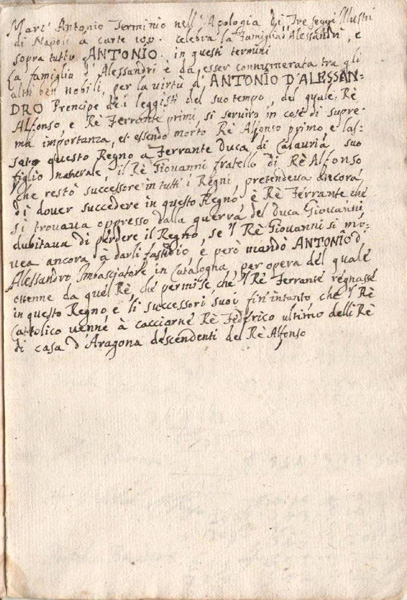 Marc' Antonio Terminio nell'Apologia di Tre seggi Illustri
di Napoli a carte celebra la famiglia Alessandri, e
sopra tutto ANTONIO in questi termini
La famiglia d'Alessandri è da esser connumerata tra gli
altri ben nobili, per la virtù di ANTONIO D'ALESSAN-
DRO Prencipe dei leggisti del suo tempo, del quale Rè
Alfonso, e Rè Ferrante primi, si serviro in cose di supre-
ma importanza, et essendo morto Rè Alfonso primo e las-
sato questo Regno a Ferrante Duca di Calauria, suo
figlio naturale, il Rè Giovanni fratello di Rè Alfonso
che restò successore in tutti i Regni, pretendeva ancora
di dover succedere in questo Regno, e Rè Ferrante che
si trovava oppresso dalla guerra del duca Giovanni,
dubitava di perdere il Regno, se il Rè Giovanni si mo-
vea ancora à darli fastidio, e però mandò ANTONIO d'
Alessandro Imbasciatore in Catalogna, per opera del quale
ottenne da quel Rè, che permise, che 'l Rè Ferrante regnasse
in questo Regno, e li successori suoi fin'intanto che 'l Rè
Cattolico venne à cacciarne Rè Federico ultimo delli Rè
di casa d'Aragona descendenti del Rè Alfonso